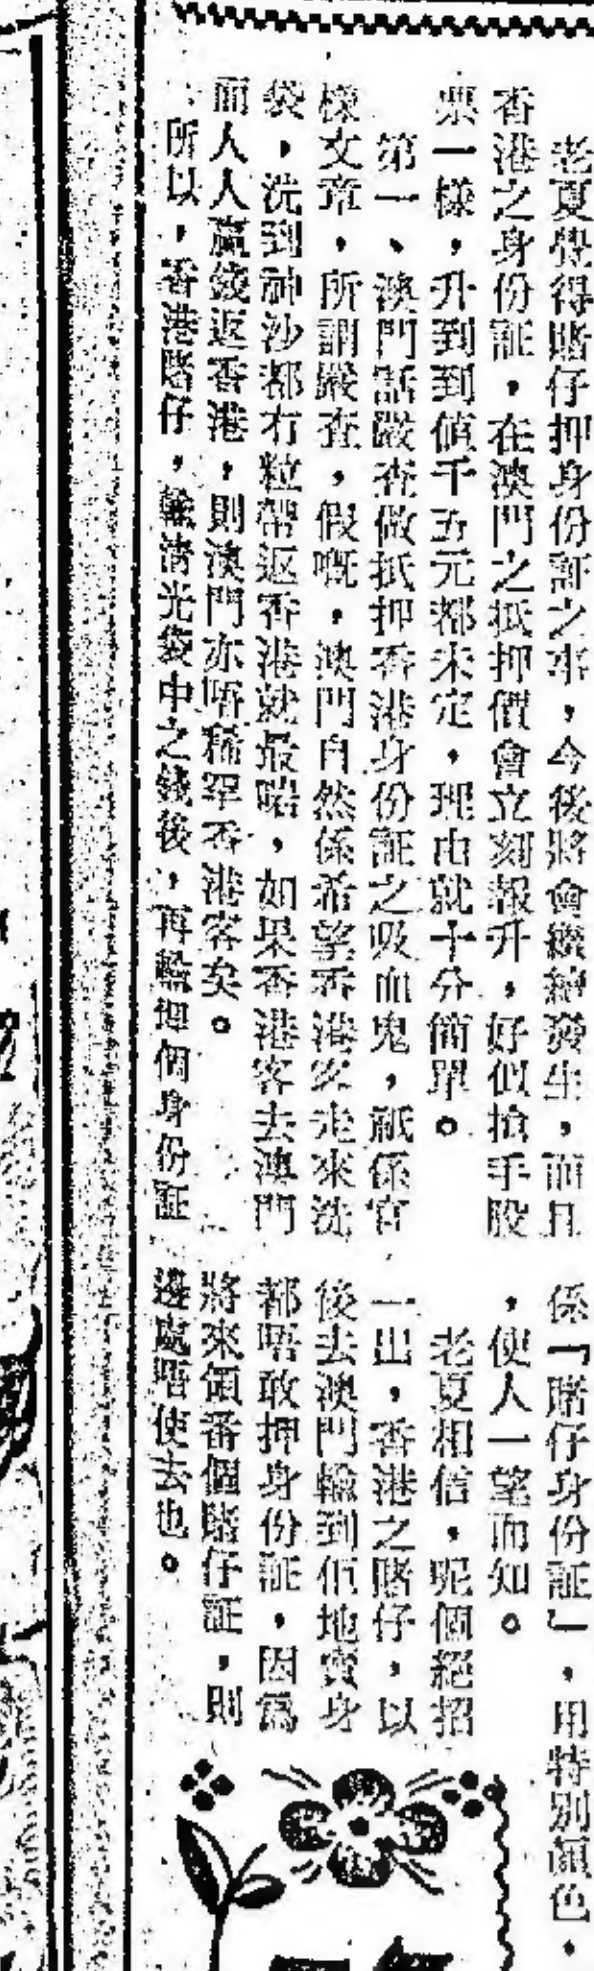 老夏覺得賭仔押身份証之事，今後將會繼續發生，而且
香港之身份証，在澳門之抵押價會立刻報升，好似搶手股
票一樣，升到到值千五元都未定，理由就十分簡單。
第一、澳門話嚴查做抵押香港身份証之吸血鬼，祇係官
樣文章，所謂嚴查，假嘅，澳門自然係希望香港客走來洗
袋，洗到神沙都冇粒帶返香港就最啱，如果香港客去澳門
而人人贏錢返香港，則澳門亦唔稀罕香港客矣。
所以，香港賭仔，輸清光袋中之錢後，再輸埋個身份証
係「賭仔身份証」，用特別顏色，
，使人一望而知。
老夏相信，呢個絕招
一出，香港之賭仔，以
後去澳門輸到佢地賣身
都唔敢押身份証，因為
將來領番個賭仔証，則
邊處唔使去也。